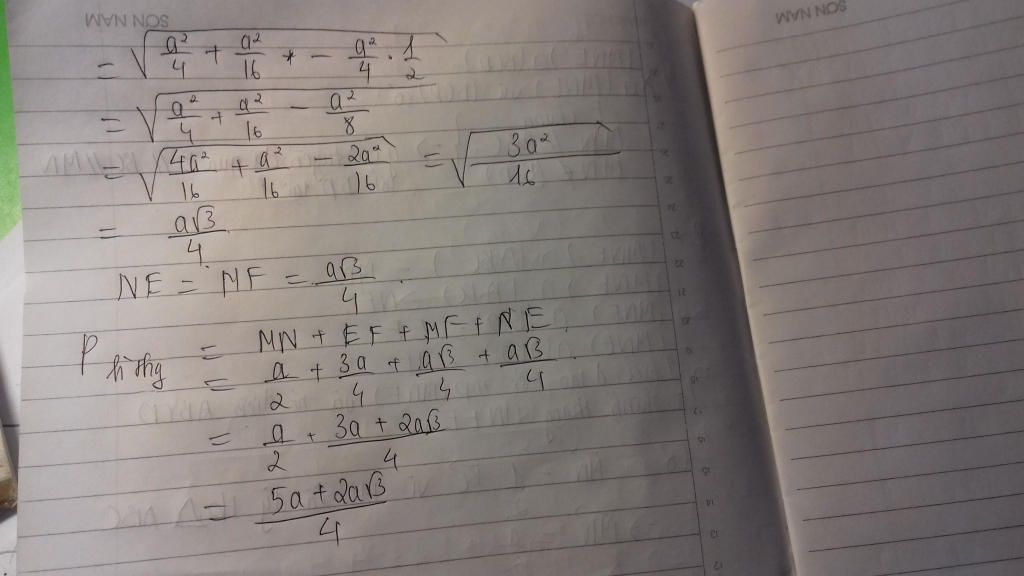 SON NAM
SON NAM
= √(a²/4 + a²/16 + - a²/4 . 1/2)
= √(a²/4 + a²/16 - a²/8)
= √(4a²/16 + a²/16 - 2a²/16) = √(3a²/16)
= a√3/4
NE = MF = a√3/4
P hình thg = MN + EF + MF + NE
= a/2 + 3a/4 + a√3/4 + a√3/4
= a/2 + (3a + 2a√3)/4
= (5a + 2a√3)/4